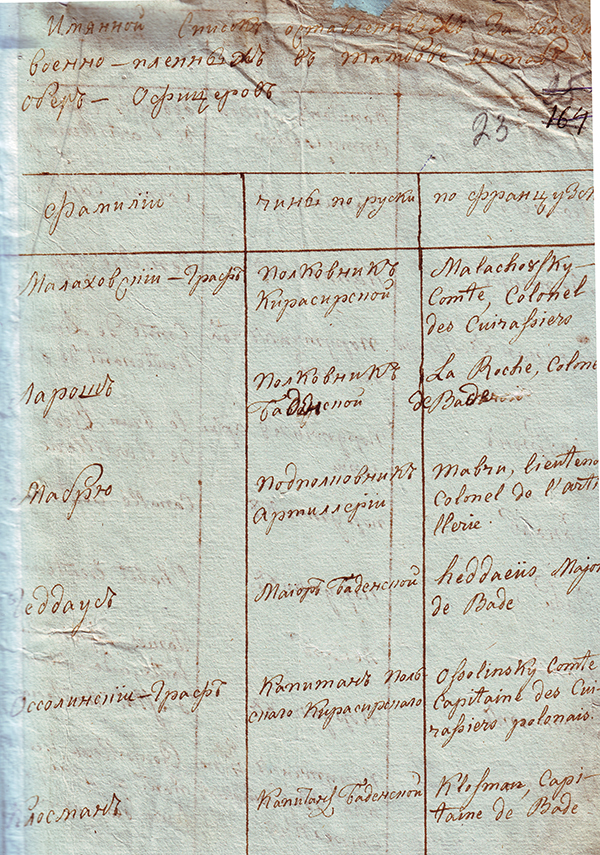 Имянной Списокъ оставленныхъ за болѣзн
военно-пленныхъ въ Тамбове Штабъ
оберъ-Офицеровъ
23 164
Фамилiи
чины по руски
по француз
Малаховскiи-Графъ
Полковникъ
Кирасирской
Malachovsky
Comte, Colonel
des Cuirassiers
Ларошъ
Полковникъ
Баденской
La Roche, Colone
de Bade
Мабрю
Подполковникъ
Артиллерiи
Mabru, lieuteno
Colonel de l'arti
llerie.
Геддаусъ
Маiоръ Баденской
heddaeüs Major
de Bade
Оссолинскiи-Графъ
Капитанъ Поль
скаго Кирасирскаго
Ossolinsky Comte
Capitaine des Cui
rassiers polonais.
Клосманъ
Капитанъ Баденской
Klosman, Capi-
taine de Bade